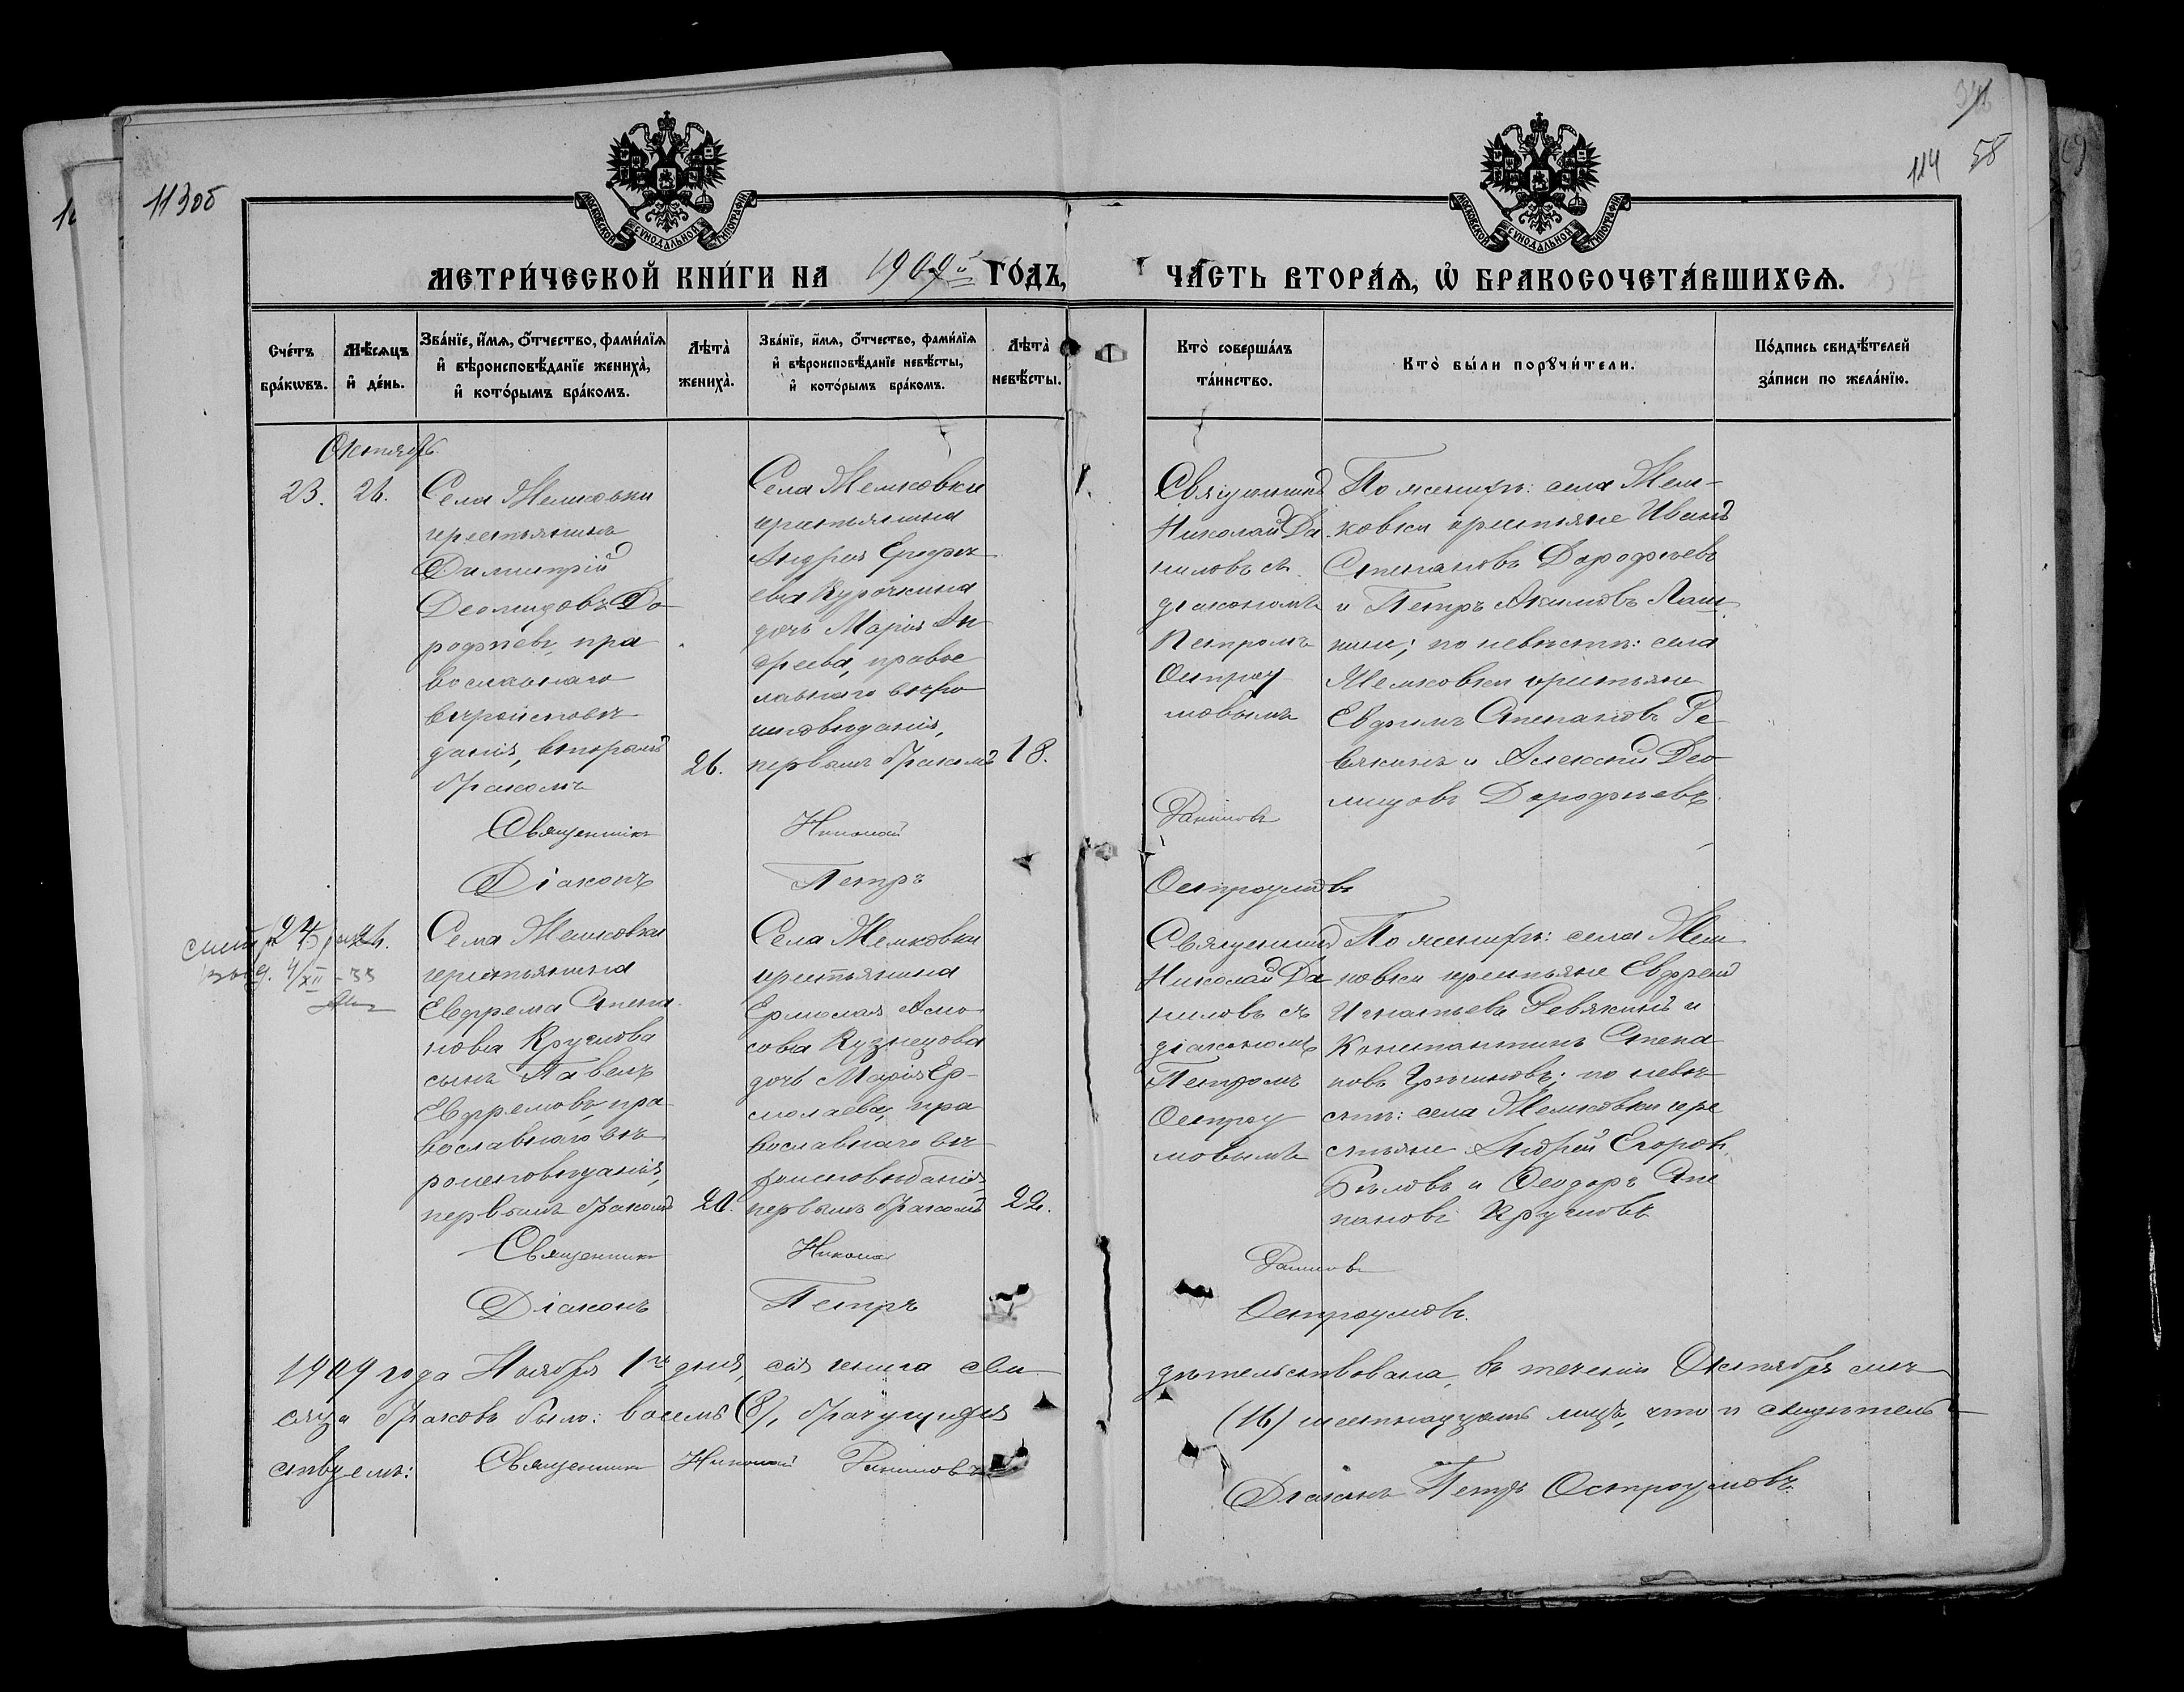 113об
114
58
МОСКОВСКОЙ СѴНОДАЛЬНОЙ ТИПОГРАФІИ
МОСКОВСКОЙ СѴНОДАЛЬНОЙ ТИПОГРАФІИ
МЕТРИ́ЧЕСКОЙ КНИ́ГИ НА 1909й ГО́ДЪ,
ЧА́СТЬ ВТОРА́Ѧ, Ѡ҆ БРАКОСОЧЕТА́ВШИХСѦ.
Сче́тъ бра́кѡвъ.
Мѣ́сѧцъ и҆ де́нь.
Зва́нїе, и҆́мѧ, ѻ҆́тчество, фами́лїѧ
и҆ вѣроисповѣ́данїе жениха̀,
и҆ кото́рымъ бра́комъ.
Лѣта̀ жениха̀.
Зва́нїе, и҆́мѧ, ѻ҆́тчество, фами́лїѧ
и҆ вѣроисповѣ́данїе невѣ́сты,
и҆ кото́рымъ бра́комъ.
Лѣта̀ невѣ́сты.
Кто̀ соверша́лъ та́инство.
Кто̀ бы́ли порꙋчи́тели.
По́дпись свидѣ́телей за́писи по жела́нїю.
Октябрь
23.
26.
Села Жемковки
крестьянинъ
Димитрій
Деомидовъ До-
рофѣевъ, пра
вославнаго
вѣроисповѣ
данія, вторымъ
бракомъ
26.
Села Жемковки
крестьянина
Андрея Ерофѣ
ева Курочкина
дочь Марія Ан
дреева, правос
лавнаго вѣро
исповѣданія,
первымъ бракомъ
18.
Священникъ
Николай Да
ниловъ съ
діакономъ
Петромъ
Остроу
мовымъ
По женихѣ: села Жем-
ковки крестьяне Иванъ
Степановъ Дорофѣевъ
и Петръ Акимовъ Лаш
кинъ; по невѣстѣ: села
Жемковки крестьяне
Евфимъ Степановъ Ре-
вякинъ и Алексѣй Део
мидовъ Дорофѣевъ.
Священникъ Николай Даниловъ
Діаконъ Петръ Остроумовъ
24
26.
4/XII - 33
Села Жемковки
крестьянина
Евфрема Степа
нова Круглова
сынъ Павелъ
Евфремовъ, пра
вославнаго вѣ
роисповѣданія,
первымъ бракомъ
20.
Села Жемковки
крестьянина
Ермолая Амо
сова Кузнецова
дочь Марія Ер-
молаева, пра
вославнаго вѣ
роисповѣданія,
первымъ бракомъ
22.
Священникъ
Николай Да
ниловъ съ
діакономъ
Петромъ
Остроу
мовымъ
По женихѣ: села Жем
ковки крестьяне Евфремъ
Игнатьевъ Ревякинъ и
Константинъ Степа
новъ Гришновъ; по невѣ
стѣ: села Жемковки кре
стьяне Андрей Егоровъ
Бѣловъ и Ѳеодоръ Сте
пановъ Кругловъ
Священникъ Николай Даниловъ
Діаконъ Петръ Остроумовъ.
1909 года Ноября 1го дня, сія книга сви
дѣтельствована, въ теченіи Октября мѣ
сяца браковъ было: восемь (8), брачущихся
(16) шестнадцать лицъ, что и свидѣтель
ствуемъ: Священникъ Николай Даниловъ
Діаконъ Петръ Остроумовъ.